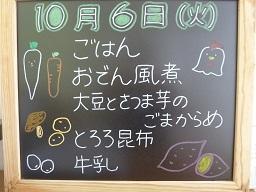 10月6日(火)
ごはん
おでん風煮
大豆とさつま芋の
ごまからめ
とろろ昆布
牛乳